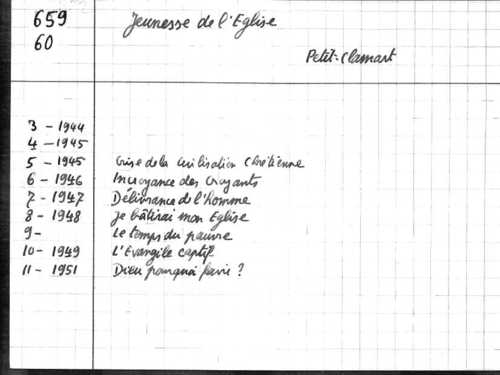 659
60
Jeunesse de l'Eglise
Petit-Clamart
3 - 1944
4 - 1945
5 - 1945 Crise de la Civilisation Chrétienne
6 - 1946 Incroyance des Croyants
7 - 1947 Délivrance de l'homme
8 - 1948 Je bâtirai mon Eglise
9 - Le temps du pauvre
10 - 1949 L'Evangile captif
11 - 1951 Dieu pourquoi faire ?